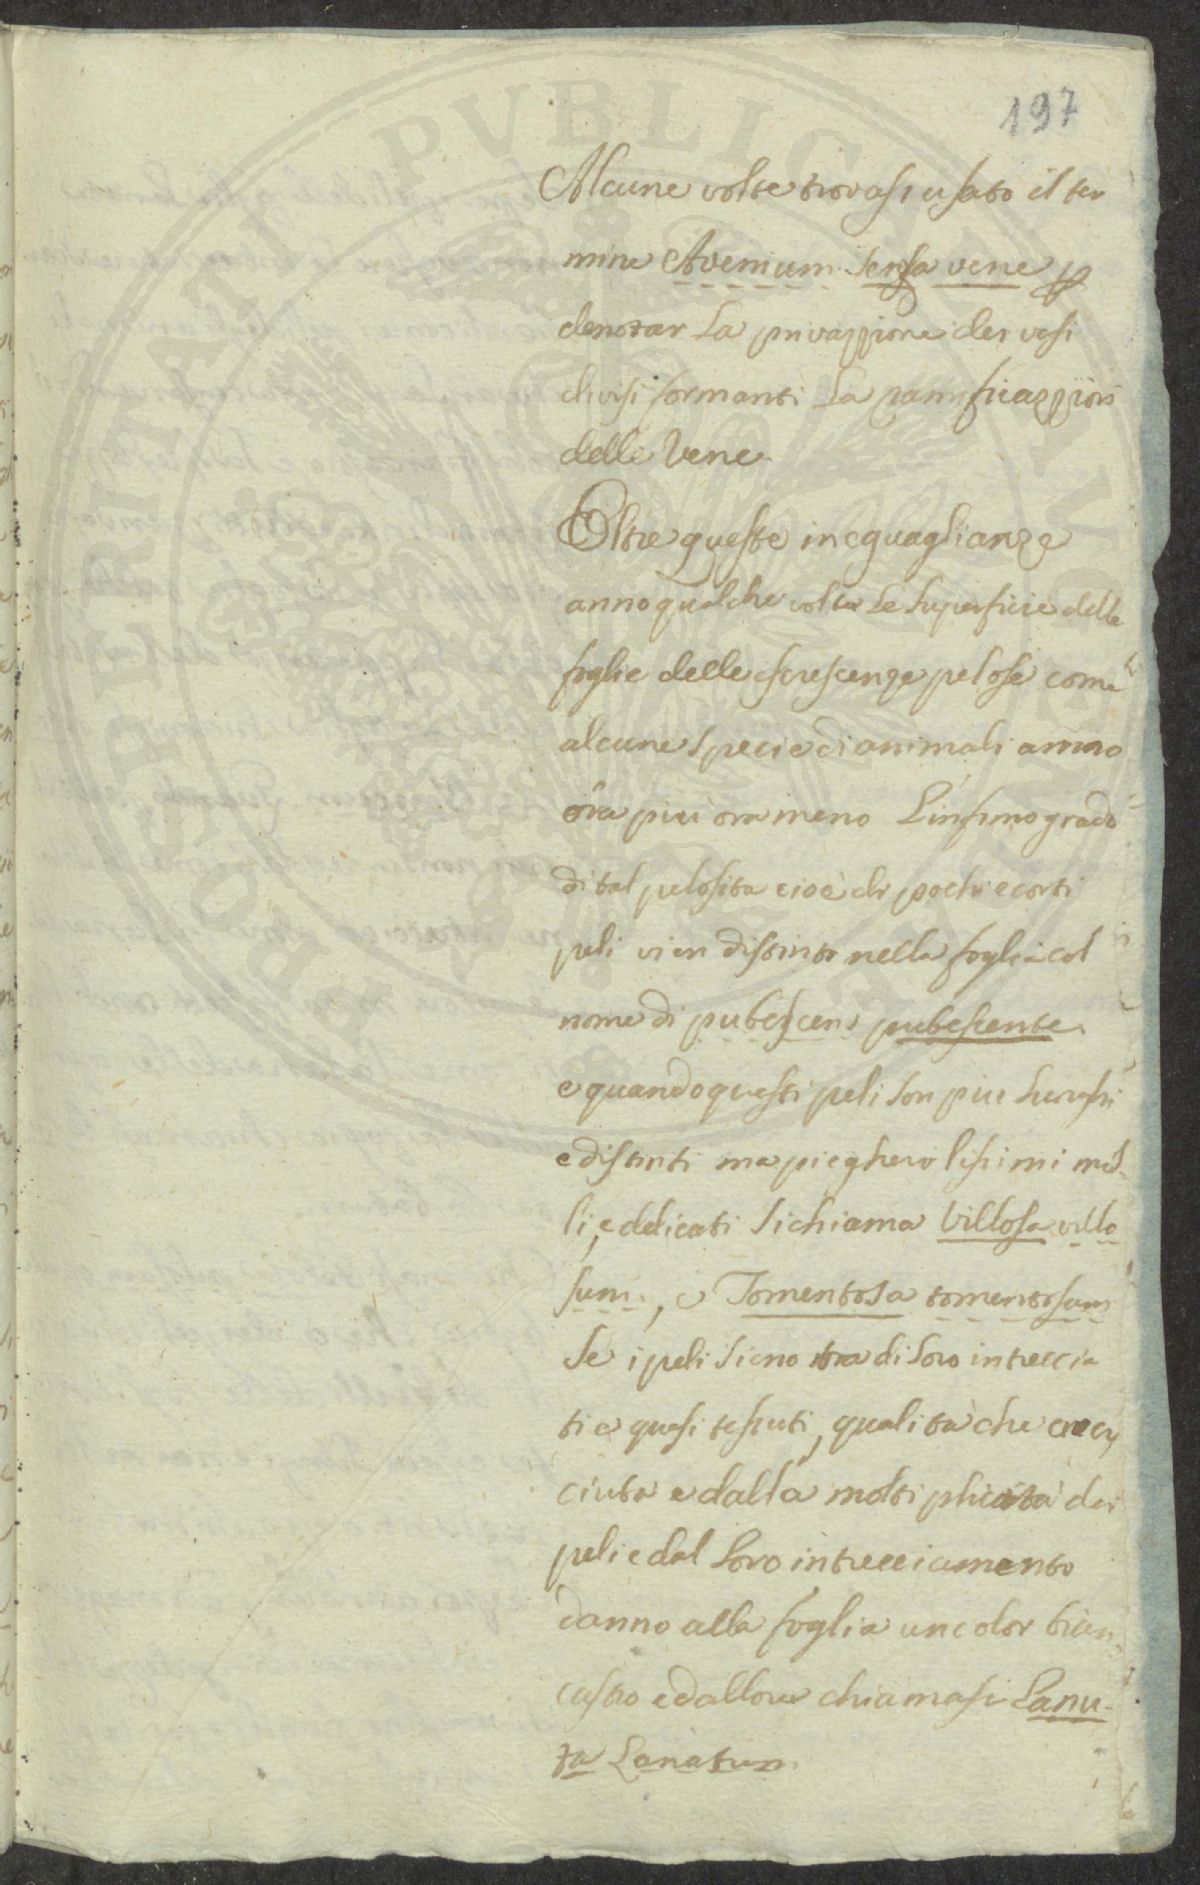 197
Alcune volte trovasi usato il ter
mine Avenium senza vene p
denotar La privazzione dei vasi
divisi formanti La ramificazzion
delle Vene.
Oltre queste ineguaglianze
anno qualche volta le superficie delle
foglie delle escrescenze pelose come
alcune specie di animali anno
ora piu ora meno L'infimo grado
di tal pelosita cioè di pochi e corti
peli vien distinto nella foglia col
nome di pubescens pubescente.
e quando questi peli son piu
e distinti ma pieghevolissimi mol
li, e delicati si chiama Villosa villo
sum, o Tomentosa tomentosum
Se i peli sieno tra di loro intreccia
ti e quasi tessuti, qualita che
ciuta e dalla moltiplicità dei
peli e dal loro intrecciamento
danno alla foglia un color bian
castro ed allora chiamasi Lanu-
ta Lanatum